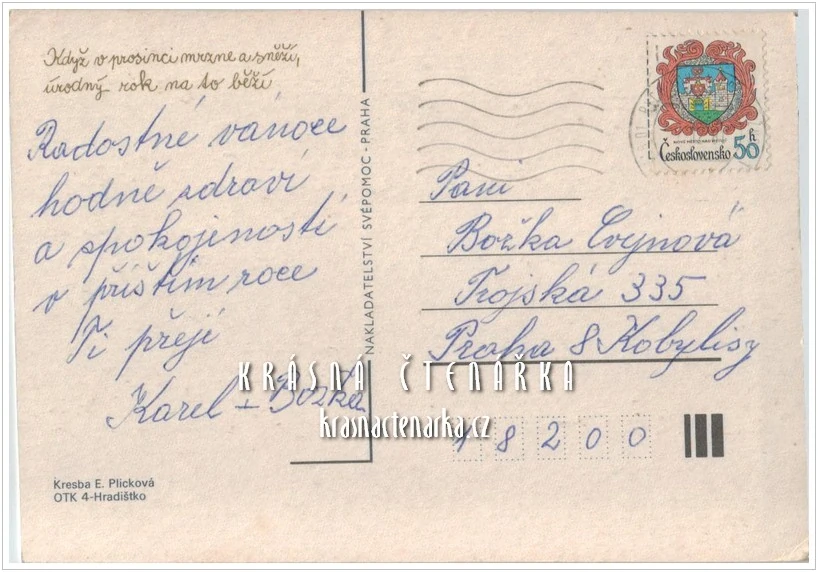 Když v prosinci mrzne a sněží,
úrodný rok na to běží
Radostné vánoce
hodně zdraví
a spokojenosti
v příštím roce
Ti přejí
Karel + Božka
Kresba E. Plicková
OTK 4-Hradištko
NAKLADATELSTVÍ SVÉPOMOC - PRAHA
Československo 50 h
Paní
Božka Cvejnová
Trojská 335
Praha 8 Kobylisy
18200
KRÁSNÁ ČTENÁŘKA
krasnactenarka.cz